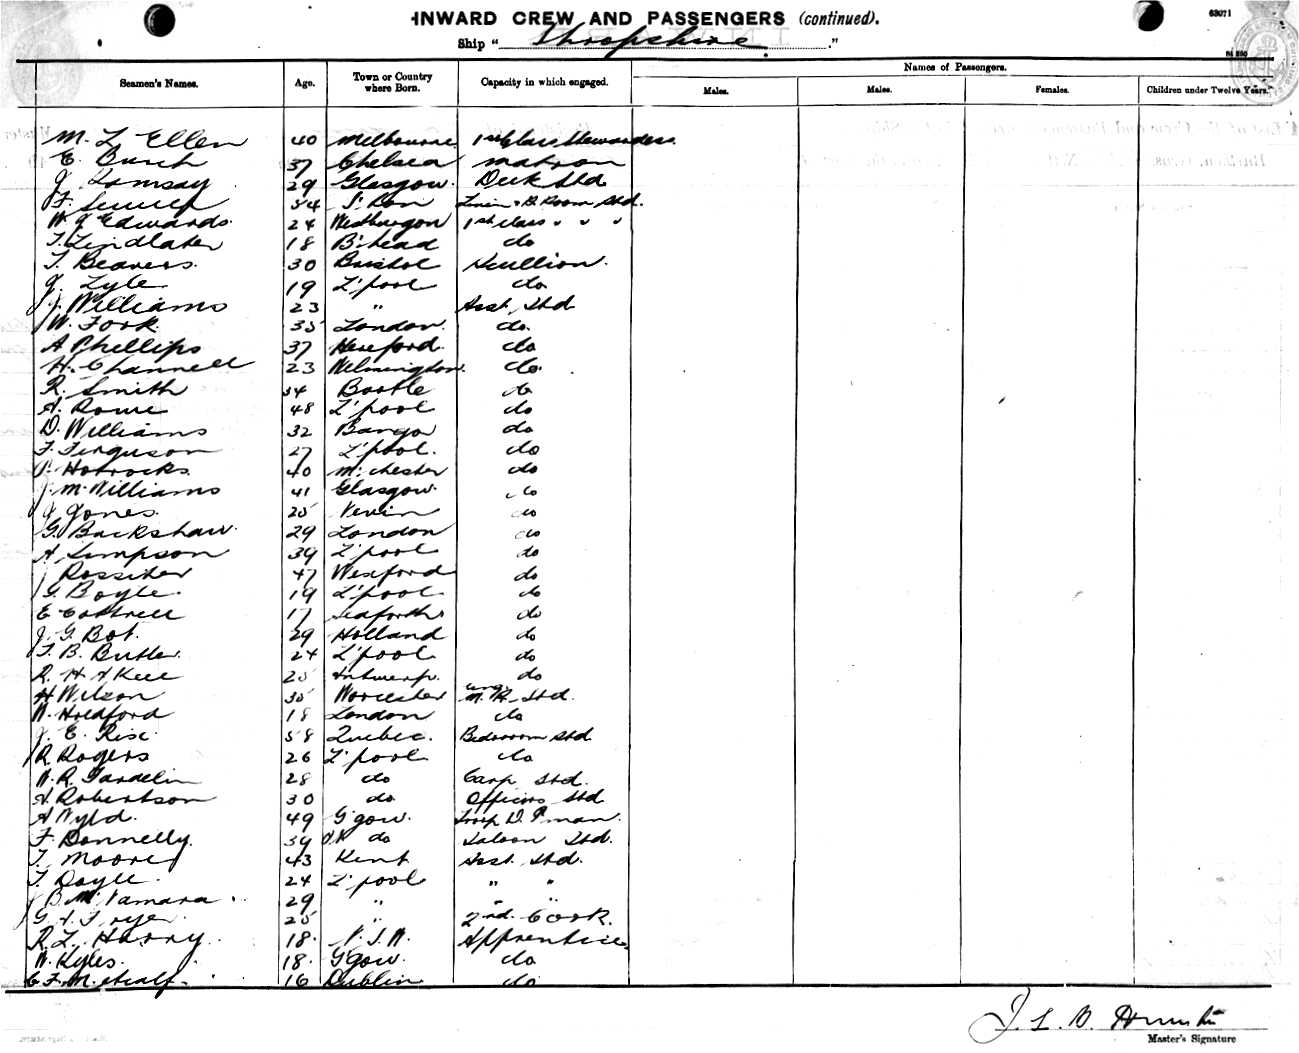 INWARD CREW AND PASSENGERS (continued).
63071
Ship "Shropshire."
Seamen's Names. Age. Town or Country where Born. Capacity in which engaged. Names of Passengers.
Males. Males. Females. Children under Twelve Years.
M. L Ellen 40 Melbourne 1st Class Stewardess
E. Burch 37 Chelsea Matron
J Ramsay 29 Glasgow. Deck Std
F. 54 Room Std.
W. J Edwards 24 1st class " " "
T. Lindlater 18 B'head do
T. Beavers 30 Bristol Scullion.
J. Lyle 19 L'pool do
J. Williams 23 " Asst. Std
W. Fook 35 London. do.
A Phillips 37 Hereford. do
H. Channell 23 Wilmington. do.
R. Smith 34 Bootle do
A. Rowe 48 L'pool do
D. Williams 32 Bangor do
F. Ferguson 27 L'pool. do
Horrocks 40 M'chester do
J. McWilliams 41 Glasgow. do
J Jones. 25 Nevin do
G. Backshaw. 29 London do
A. Simpson 39 L'pool do
J Rossiter 47 Wexford do
G. Boyle. 19 L'pool do
E Cottrell 17 Seaforth do
J. G. Bot. 29 Holland do
T. B. Butler. 24 L'pool do
R. H. A Kell 25 Antwerp. do
H Wilson 35 Worcester Std.
W. Holdford 18 London do
J. E. Rise 58 Quebec. Bedroom Std
R. Rogers 26 L'pool do
W. R. Gardelin 28 do Carp Std.
A. Robertson 30 do Officers Std
A Wyld. 49 G'gow. Troop man.
F. Donnelly. 39 do Saloon Std.
T. Moore 43 Kent Asst. Std.
T. Doyle. 24 L'pool " "
McNamara 29 " " "
G. A. Fryer. 25 " 2nd. Cook.
R. L. Harry. 18. N. S. W. Apprentice
W. Kyles. 18. G'gow. do
C. F. Metcalf. 16 Dublin do
Master's Signature